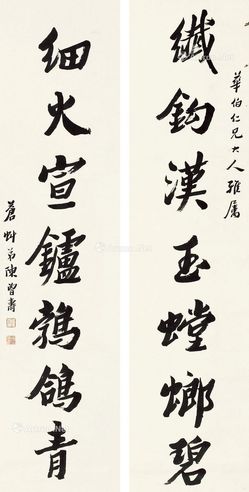 華伯仁兄大人雅屬
纖鉤漢玉螳螂碧
細火宣鑪鶉鴿青
蒼虬弟陳曾壽